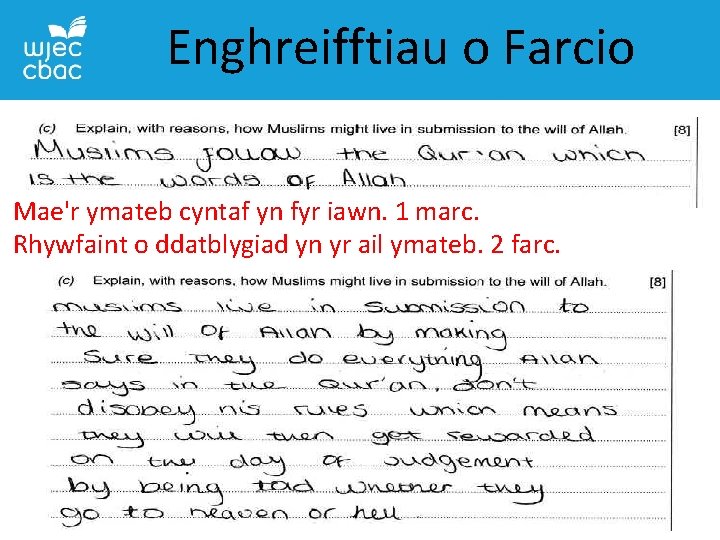 wjec
cbac
Enghreifftiau o Farcio
(c) Explain, with reasons, how Muslims might live in submission to the will of Allah. [8]
Muslims follow the Qur'an which
is the words of Allah
Mae'r ymateb cyntaf yn fyr iawn. 1 marc.
Rhywfaint o ddatblygiad yn yr ail ymateb. 2 farc.
(c) Explain, with reasons, how Muslims might live in submission to the will of Allah. [8]
muslims live in submission to
the will of Allah by making
sure they do everything Allah
says in the Qur'an, don't
disobey his rules which means
they will then get rewarded
on the day of judgement
by being told whether they
go to heaven or hell